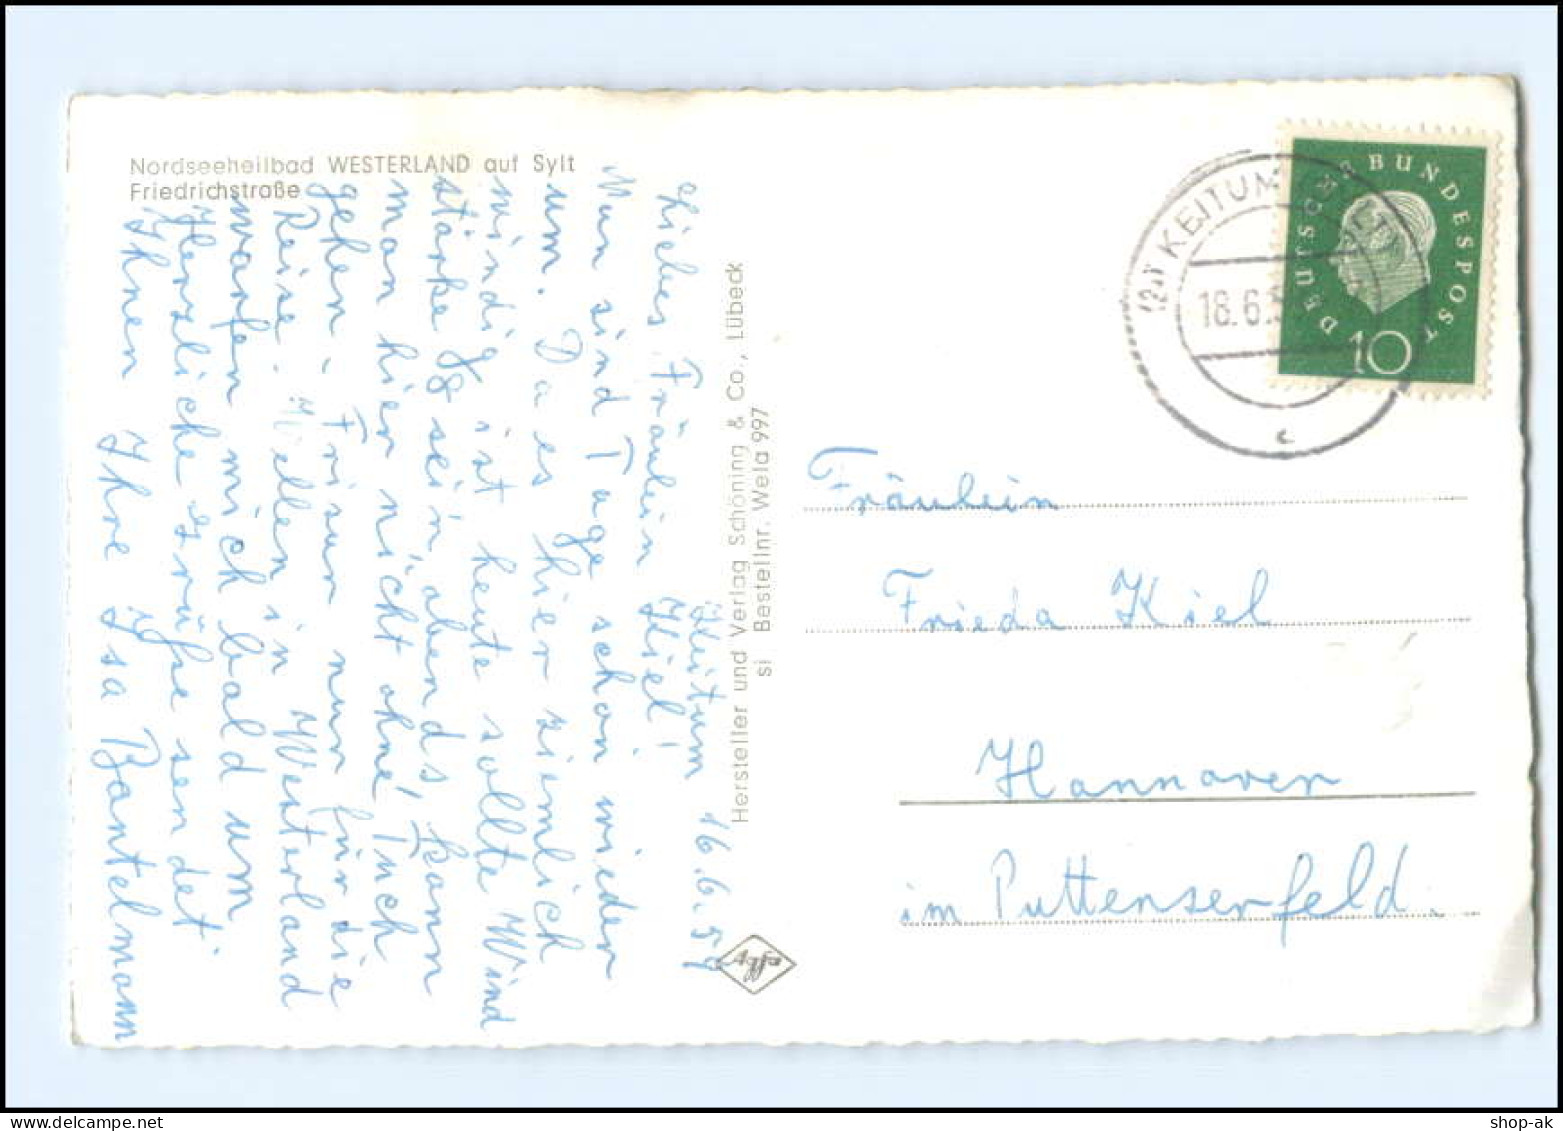 Nordseeheilbad WESTERLAND auf Sylt
Friedrichstraße
Keitum 16.6.59
Liebes Fräulein Kiel!
Nun sind Tage schon wieder
um. Da es hier ziemlich
windig ist heute sollte Wind
stärke 8 sein abends, kann
man hier nicht ohne Tuch
gehen. Frisur nur für die
Reise. Wellen in Westerland
warfen mich bald um
Herzliche Grüße sendet
Ihnen Ihre Isa Bantelmann
Hersteller und Verlag Schöning & Co., Lübeck
si Bestellnr. Wela 997
Agfa
DEUTSCHE BUNDESPOST
10
KEITUM
18.6.5
c
Fräulein
Frieda Kiel
Hannover
im Puttenserfeld.
shop-ak